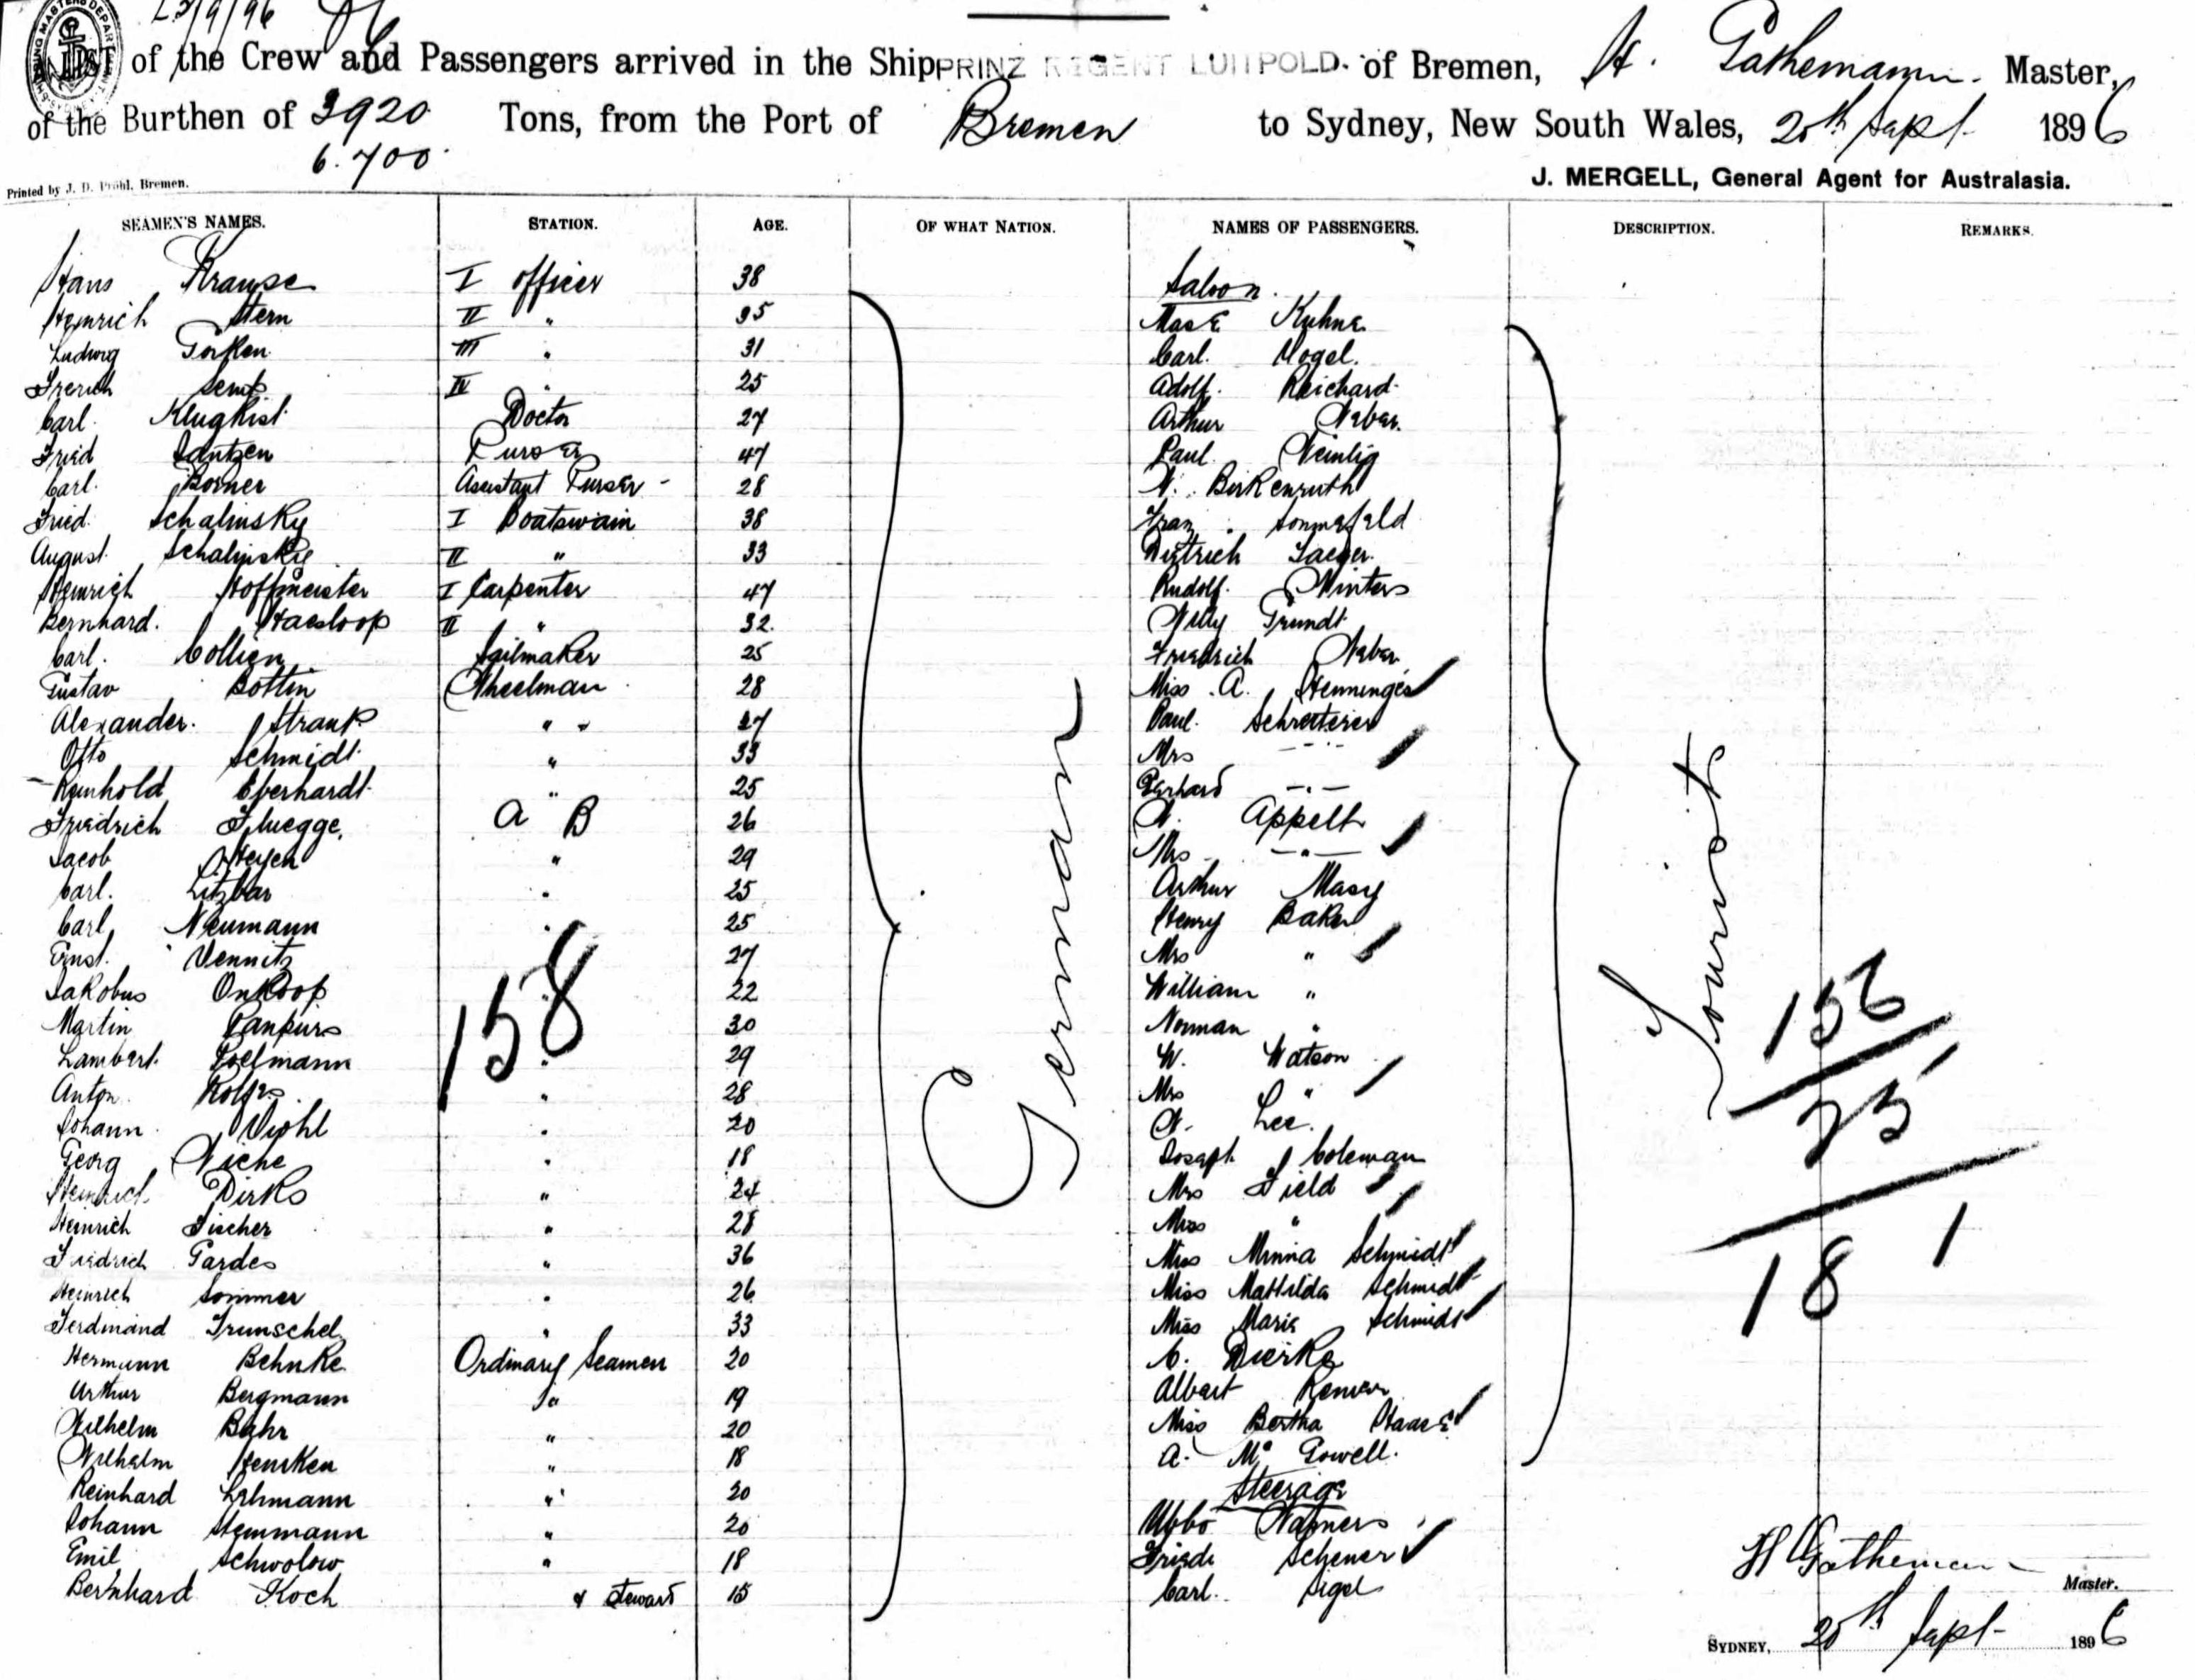 23/9/96
List of the Crew and Passengers arrived in the Ship PRINZ REGENT LUITPOLD. of Bremen, H. Gathemann. Master,
of the Burthen of 3920 Tons, from the Port of Bremen to Sydney, New South Wales, 20th Sept. 1896
6.700
J. MERGELL, General Agent for Australasia.
Printed by J. D. Pröhl, Bremen.
SEAMEN'S NAMES. STATION. AGE. OF WHAT NATION. NAMES OF PASSENGERS. DESCRIPTION. REMARKS.
Hans Krause I officer 38 Saloon.
Heinrich Stern II " 35 Kuhne
Ludwig III " 31 Carl. Vogel.
IV " 25 Adolf. Reichard
Carl. Klugkist Doctor 27 Arthur
Fried Jantzen Purser 47 Paul. Weinlig
Carl. Borner Assistant Purser 28 Birkenruth
Fried. Schalinsky I Boatswain 38 Franz Sonnefeld
August. Schalinsky II " 33 Dietrich Jaeger.
Heinrich Hoffmeister I Carpenter 47 Rudolf. Winters
Bernhard. Haesloop II " 32. Willy Grundt
Carl. Collien Sailmaker 25 Friedrich
Gustav Bottin Wheelman 28 Miss A. Henninges
Alexander. " " 27 Paul. Schretterer
Otto Schmidt " 33 Mrs — " —
Reinhold Eberhardt " 25 Gerhard — " —
Friedrich Fluegge. A B 26 W. Appelt
Jacob Heyen " 29 Mrs — " —
Carl. Litzbar " 25 Arthur Macy
Carl Neumann " 25 Henry Baker
Ernst. Vennitz 27 Mrs "
Jakobus Onkoop 22 William "
Martin Panpurs 30 Norman "
Lambert. Poelmann " 29 W. Watson
Anton Rolfes " 28 Mrs "
Johann Viohl " 20 W. Lee.
Georg Wiche " 18 Joseph Coleman
Heinrich Dirks " 24 Mrs Field
Heinrich Fischer " 28 Miss "
Friedrich Gardes " 36 Miss Minna Schmidt
Heinrich Sommer " 26 Miss Mathilda Schmidt
Ferdinand Trunschel " 33 Miss Marie Schmidt
Hermann Behnke Ordinary Seamen 20 C. Dierke
Arthur Bergmann " 19 Albert
Wilhelm Bahr " 20 Miss Bertha Haase
Wilhelm Henken " 18 A. Mc Gowell.
Reinhard Lehmann " 20 Steerage
Johann Stemmann " 20 Ubbo
Emil Schwolow " 18 Friede Scheuer
Bernhard Koch " & Steward 15 Carl. Sigel
German
Tourist
158
156
25
181
H Gathemann
Master.
SYDNEY, 20th Sept 1896